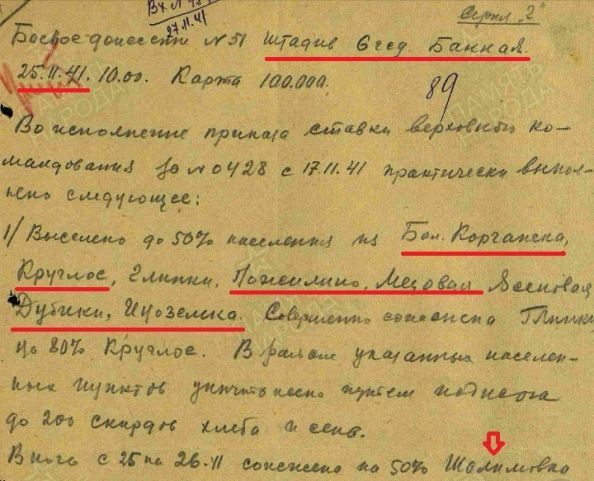 Вх № 
27.11.41
Серия "Г"
Боевое донесение № 51 Штадив 6 гсд. Банная.
25.11.41. 10.00. Карта 100.000.
89
Во исполнение приказа ставки верховного ко-
мандования за № 0428 с 17.11.41 практически выпол-
нено следующее:
1/ Выселено до 50% населения из Бол. Корчажка,
Круглое, Глинки, Пожилино, Мезовая Ясеновая
Дубики, Иноземка. Совершенно сожжена Глинки
на 80% Круглое. В районе указанных населен-
ных пунктов уничтожено путем поджога
до 200 скирдов хлеба и сена.
В ночь с 25 на 26.11 сожжено на 50% Шалимовка